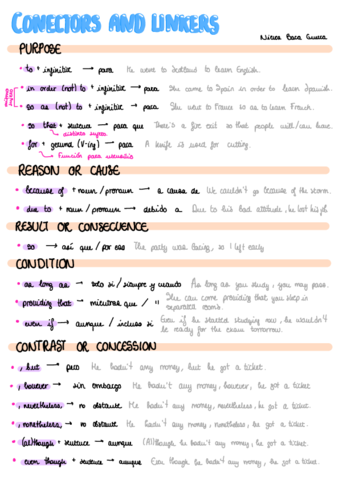 CONECTORS AND LINKERS
PURPOSE
• to + infinitive → para He went to Scotland to learn English.
• in order (not) to + infinitive → para She came to Spain in order to learn Spanish.
• so as (not) to + infinitive → para She went to France so as to learn French.
• so that + sentence → para que There's a fire exit so that people will/can leave.
distintos sujetos
• for + gerund (V-ing) → para A knife is used for cutting.
REASON OR CAUSE
• because of + noun/pronoun → a causa de We couldn't go because of the storm.
• due to + noun/pronoun → debido a Due to his bad attitude, he lost his job
RESULT OR CONSECUENCE
• so → así que/por eso The party was boring, so I left early
CONDITION
• as long as → solo si/siempre y cuando As long as you study, you may pass.
• providing that → mientras que / " She can come providing that you sleep in
separated rooms.
• even if → aunque / incluso si Even if he started studying now, he wouldn't
be ready for the exam tomorrow.
CONTRAST OR CONCESSION
• , but → pero He hadn't any money, but he got a ticket.
• , however → sin embargo He hadn't any money, however, he got a ticket
• , nevertheless, → no obstante He hadn't any money, nevertheless, he got a ticket.
• , nonetheless, → no obstante He hadn't any money, nonetheless, he got a ticket.
• (al)though + sentence → aunque (Al)though, he hadn't any money, he got a ticket.
• even though + sentence → aunque Even though, he hadn't any money, he got a ticket.